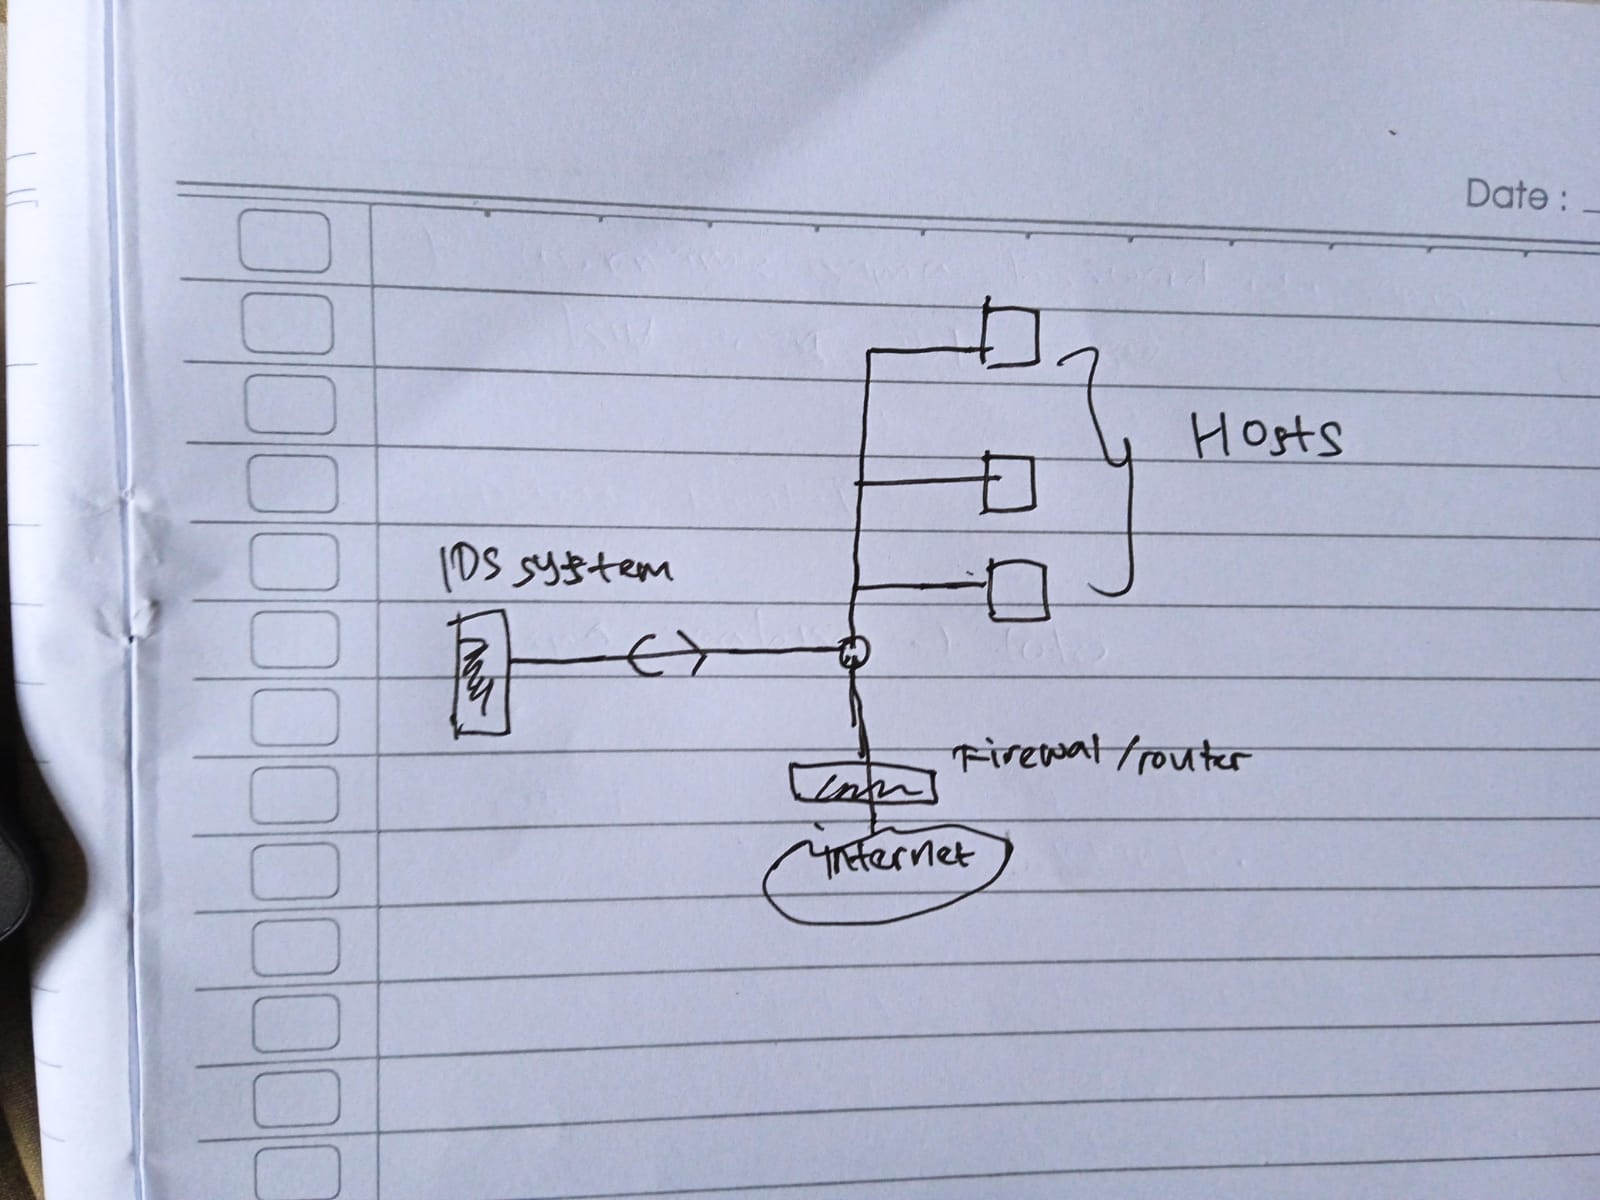 Date :
Hosts
IDS system
Firewal/router
internet